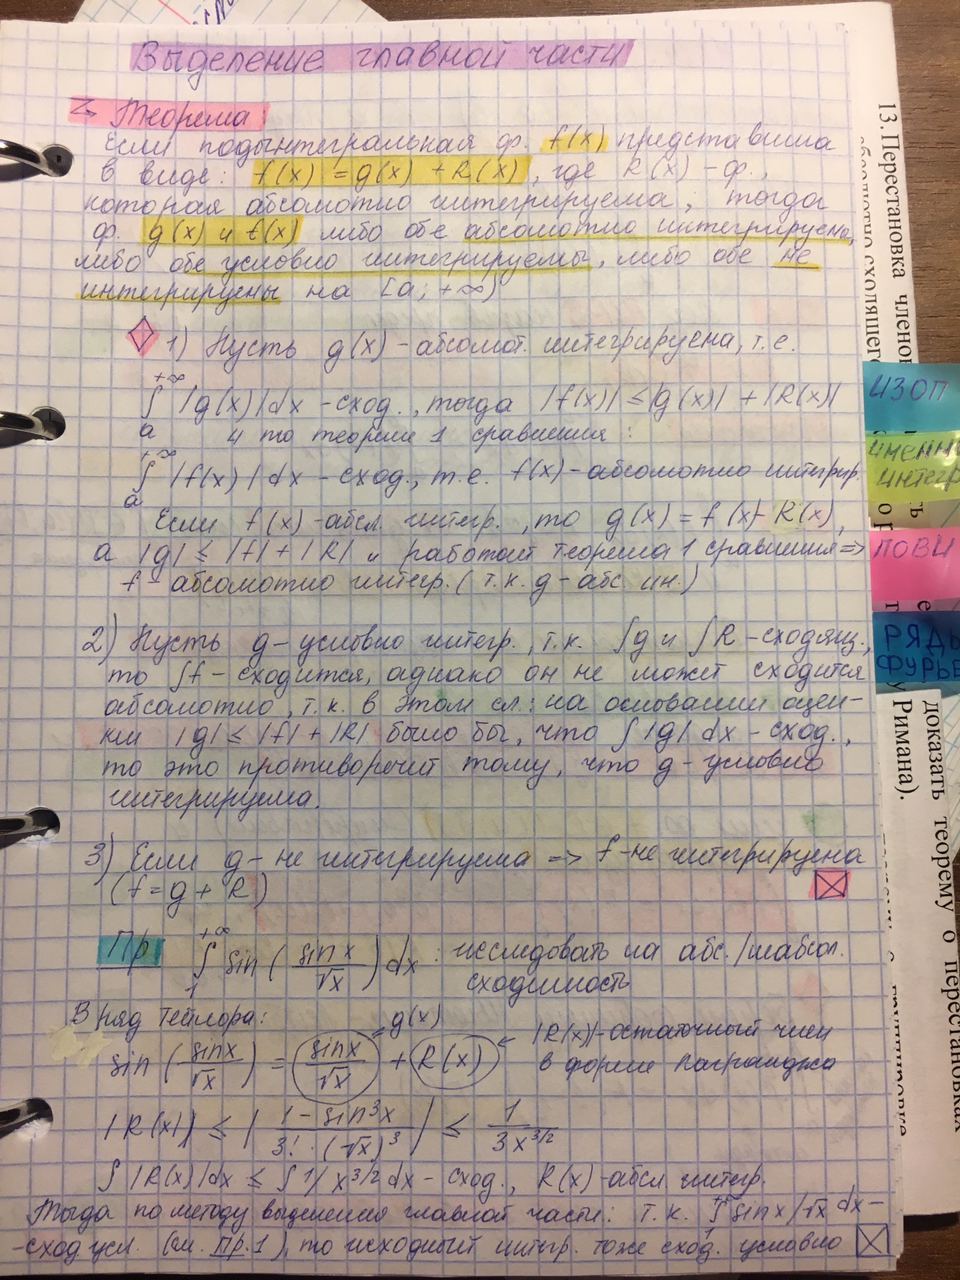 Выделение главной части
Теорема:
Если подынтегральная ф. f(x) представима
в виде: f(x) = g(x) + R(x), где R(x) - ф.,
которая абсолютно интегрируема, тогда
ф. g(x) и f(x) либо обе абсолютно интегрируемы,
либо обе условно интегрируемы, либо обе не
интегрируемы на [a; +∞)
1) Пусть g(x) - абсолют. интегрируема, т.е.
∫ₐ^{+∞} |g(x)|dx - сход., тогда |f(x)| ≤ |g(x)| + |R(x)|
И по теореме 1 сравнения:
∫ₐ^{+∞} |f(x)|dx - сход., т.е. f(x) - абсолютно интегрир.
Если f(x) - абсл. интегр., то g(x) = f(x) - R(x),
а |g| ≤ |f| + |R| и работает теорема 1 сравнения =>
f - абсолютно интегр. (т.к. g - абс. ин.)
2) Пусть g - условно интегр., т.к. ∫g и ∫R - сходящ.,
то ∫f - сходится, однако он не может сходится
абсолютно, т.к. в этом сл.: на основании оцен-
ки |g| ≤ |f| + |R| было бы, что ∫|g| dx - сход.,
то это противоречит тому, что g - условно
интегрируема.
3) Если g - не интегрируема => f - не интегрируема
(f = g + R)
Пр ∫₁^{+∞} sin(sinx/√x) dx : исследовать на абс./неабсол.
сходимость
В ряд Тейлора:
sin(sinx/√x) = sinx/√x + R(x)
g(x)
|R(x)| - остаточный член
в форме Лагранджа
|R(x)| ≤ |1 - sin³x / 3! · (√x)³| ≤ 1/3x^{3/2}
∫|R(x)|dx ≤ ∫1/x^{3/2}dx - сход., R(x) - абсл. интегр.
Тогда по методу выделения главной части: т.к. ∫₁^{+∞} sinx/√x dx -
-сход. усл. (см. Пр.1), то исходный интегр. тоже сход. условно
13. Перестановка членов
абсолютно сходящегося
доказать теорему о перестановках
Римана).
ИЗОП
интегр
ПОВИ
РЯДЫ
ФУРЬЕ